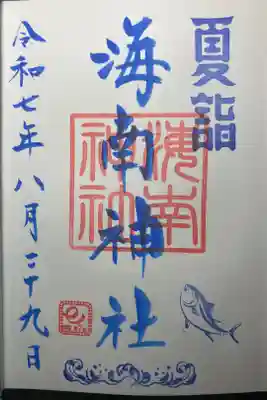 夏詣
海南神社
海南
神社
令和七年八月二十九日